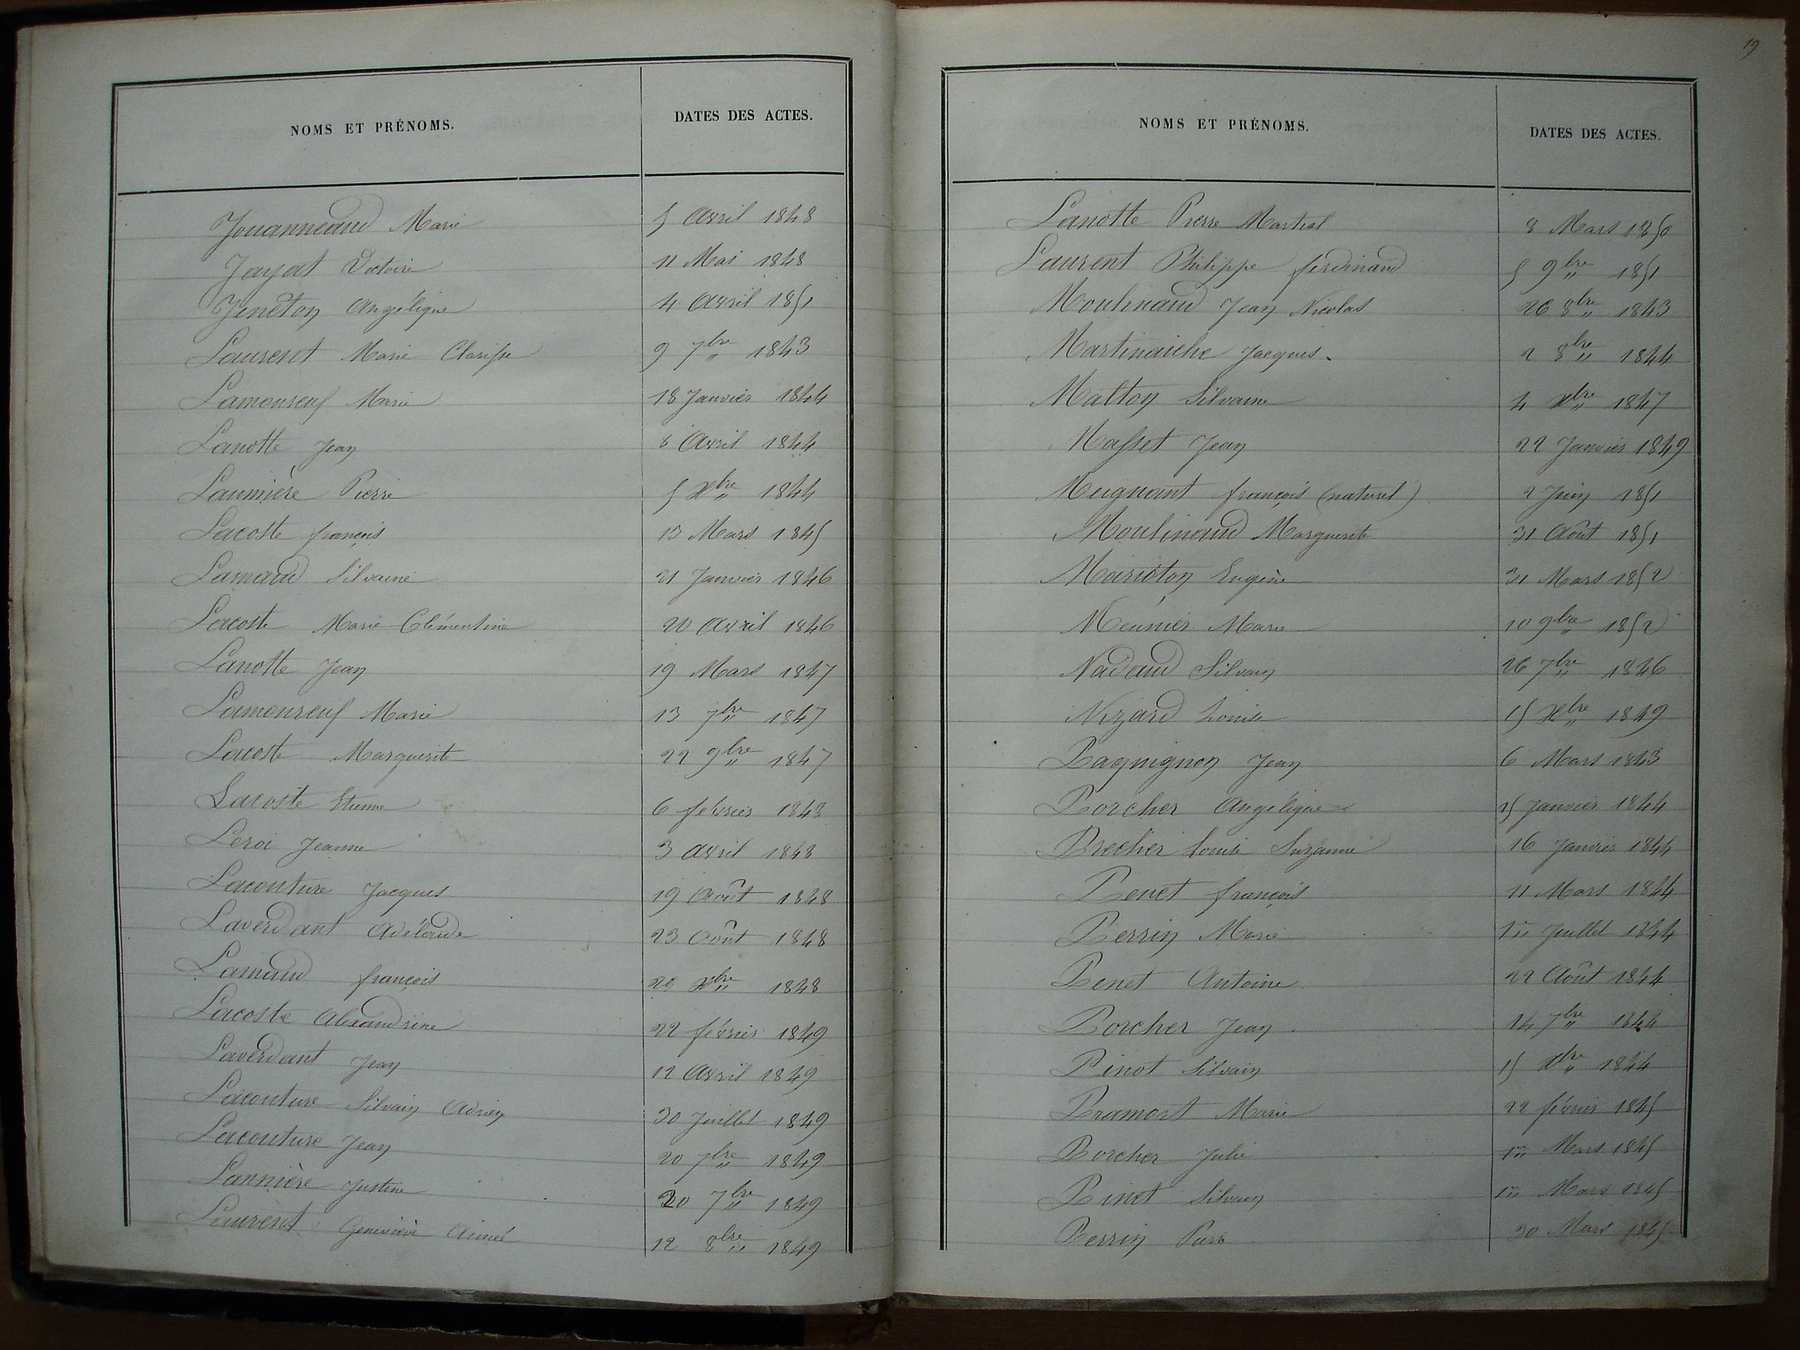 NOMS ET PRÉNOMS. DATES DES ACTES.
Jouanneaud Marie 5 Avril 1848
Jayat Victoire 11 Mai 1848
Jeneton Angélique 4 Avril 1851
Laurent Marie Clarisse 9 7bre 1843
Lamoureuf Marie 18 Janvier 1844
Lanotte Jean 6 Avril 1844
Laumière Pierre 5 Xbre 1844
Lacoste françois 13 Mars 1845
Lamaud Silvaine 21 Janvier 1846
Lacoste Marie Clémentine 20 Avril 1846
Lanotte Jean 19 Mars 1847
Lamoureuf Marie 13 7bre 1847
Lacoste Marguerite 22 9bre 1847
Lacoste Etienne 6 février 1848
Leroi Jeanne 3 Avril 1848
Lacouture Jacques 19 Août 1848
Laverdant Adélaïde 23 Août 1848
Lamaud françois 29 Xbre 1848
Lacoste Alexandrine 22 février 1849
Laverdant Jean 12 Avril 1849
Lacouture Silvain Adrien 30 Juillet 1849
Lacouture Jean 20 7bre 1849
Lannière Justine 20 7bre 1849
Laurent Geneviève Aimée 12 8bre 1849
19
NOMS ET PRÉNOMS. DATES DES ACTES.
Lanotte Pierre Martial 8 Mars 1850
Laurent Philippe ferdinand 5 9bre 1851
Moulinaud Jean Nicolas 26 8bre 1843
Martinaiche Jacques. 2 8bre 1844
Malton Silvaine 4 Xbre 1847
Masset Jean 22 Janvier 1849
Meignant françois (naturel) 2 Juin 1851
Moulinaud Marguerite 31 Août 1851
Marioton Eugène 21 Mars 1852
Meunier Marie 10 9bre 1852
Nadaud Silvain 26 7bre 1846
Nizard Louise 15 Xbre 1849
Pagnignon Jean 6 Mars 1843
Porcher Angélique 25 Janvier 1844
Precher Louise Suzanne 16 Janvier 1844
Penet françois 11 Mars 1844
Perrin Marie 1er Juillet 1844
Penet Antoine 22 Août 1844
Porcher Jean 14 7bre 1844
Pinot Silvain 15 Xbre 1844
Pramort Marie 22 février 1845
Porcher Julie 1er Mars 1845
Pinet Silvain 1er Mars 1845
Perrin Pierre 30 Mars 1845